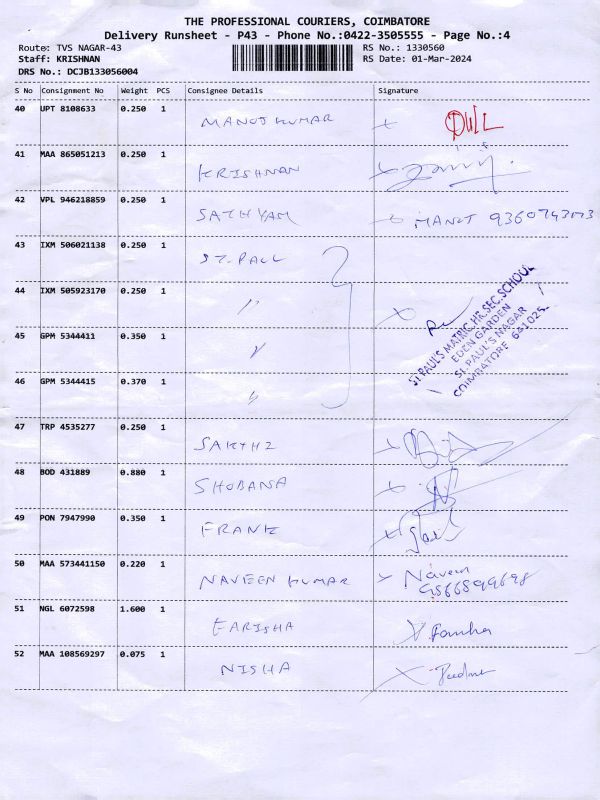 THE PROFESSIONAL COURIERS, COIMBATORE
Delivery Runsheet - P43 - Phone No.:0422-3505555 - Page No.:4
Route: TVS NAGAR-43 RS No.: 1330560
Staff: KRISHNAN RS Date: 01-Mar-2024
DRS No.: DCJB133056004
S No Consignment No Weight PCS Consignee Details Signature
40 UPT 8108633 0.250 1 MANOJ KUMAR
41 MAA 865051213 0.250 1 KRISHNAN
42 VPL 946218859 0.250 1 SATHYAM MANOJ
43 IXM 506021138 0.250 1 ST. PAUL
44 IXM 505923170 0.250 1 "
ST.PAUL'S MATRIC.HR.SEC.SCHOOL
EDEN GARDEN
ST.PAUL'S NAGAR
COIMBATORE 641025
45 GPM 5344411 0.350 1 "
46 GPM 5344415 0.370 1 "
47 TRP 4535277 0.250 1
48 BOD 431889 0.880 1 SHOBANA
49 PON 7947990 0.350 1 FRANK
50 MAA 573441150 0.220 1 NAVEEN KUMAR Naveen
51 NGL 6072598 1.600 1 FARISHA
52 MAA 108569297 0.075 1 NISHA